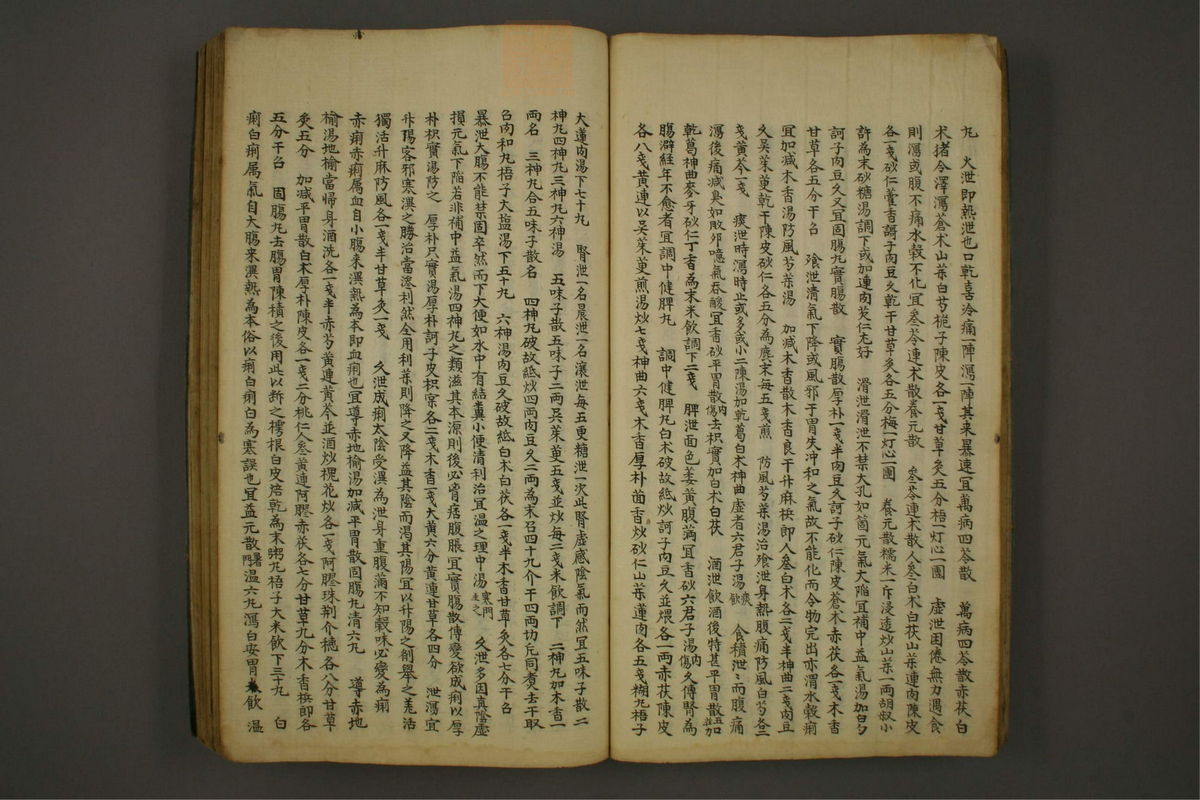 丸 火泄即熱泄也口乾喜冷痛一陣瀉一陣其来暴速宜萬病四苓散 萬病四苓散赤茯白
术猪令澤瀉蒼术山藥白芍梔子陳皮各一戔甘草灸五分梧一灯心一團 虛泄困倦無力遇食
則瀉或腹不痛水穀不化宜參苓連术散養元散 參苓連术散人參白术白茯山藥連肉陳皮
各一戔砂仁藿香訶子肉豆久乾干甘草灸各五分梅一灯心一團 養元散糯米一斤浸透炒山藥一兩胡叔小
許為末砂糖湯調下或加連肉芡仁尤好 滑泄滑泄不禁大孔如筒元氣大陷宜補中益氣湯加白勺
訶子肉豆久又宜固腸丸實腸散 實腸散厚朴一戔半肉豆久訶子砂仁陳皮蒼术赤茯各一戔木香
甘草各五分干召 飱泄清氣下降或風邪干胃失冲和之氣故不能化而令物完出亦謂水穀痢
宜加减木香湯防風芍藥湯 加减木香散木香良干升麻梹即人參白术各二戔半神曲二戔肉豆
久吴茱萸乾干陳皮砂仁各五分為麄末每五戔煎 防風芍藥湯治飱泄身熱腹痛防風白芍各二
戔黄芩一戔 痰泄時瀉時止或多或小二陳湯加乾葛白术神曲虛者六君子湯痰飮 食積泄泄而腹痛
瀉後痛减臭如敗卵噫氣吞酸宜香砂平胃散內傷去枳實加白术白茯 酒泄飲酒後特甚平胃散五並加
乾葛神曲麥牙砂仁丁香為末米飲調下二戔 脾泄面色姜黄腹滿宜香砂六君子湯內傷久傳腎為
腸澼経年不愈者宜調中健脾丸 調中健脾丸白术破故紙炒訶子肉豆久並煨各一兩赤茯陳皮
各八戔黄連以吴茱萸煎湯炒七戔神曲六戔木香厚朴茴香炒砂仁山藥蓮肉各五戔糊丸梧子
大蓮肉湯下七十丸 腎泄一名晨泄一名瀼泄每五更糖泄一次此腎虛感陰氣而然宜五味子散二
神丸四神丸三神丸六神湯 五味子散五味子二兩吴茱萸五戔並炒每二戔米飲調下 二神丸加木香一
兩名 三神丸合五味子散名 四神丸破故紙炒四兩肉豆久二兩為末召四十九介干四兩切片同煮去干取
召肉和丸梧子大塩湯下五十丸 六神湯肉豆久破故紙白术白茯各一戔半木香甘草灸各七分干召
暴泄大腸不能禁固卒然而下大便如水中有結糞小便清利治宜温之理中湯寒門主之 久泄多因真陰虛
損元氣下陷若非補中益氣湯四神丸之類滋其本源則後必胷痞腹脹宜實腸散傳變欲成痢以厚
朴枳實湯防之 厚朴只實湯厚朴訶子皮枳宲各一戔木香一戔大黄六分黄連甘草各四分 泄瀉宜
升陽客邪寒濕之勝治當滲利然全用利藥則降之又降益其陰而渴其陽宜以升陽之劑擧之羌活
獨活升麻防風各一戔半甘草灸一戔 久泄成痢太陰受濕為泄身重腹滿不知穀味必變為痢
赤痢赤痢属血自小腸来濕熱為本即血痢也宜導赤地榆湯加减平胃散固腸丸清六丸 導赤地
榆湯地榆當帰身酒洗各一戔半赤芍黄連黄芩並酒炒槐花炒各一戔阿膠珠荆介穗各八分甘草
灸五分 加减平胃散白术厚朴陳皮各一戔二分桃仁人參黄連阿膠赤茯各七分甘草九分木香梹即各
五分干召 固腸丸去腸胃陳積之後用此以断之樗根白皮焙乾為末粥丸梧子大米飲下三十丸 白
痢白痢属氣自大腸来濕熱為本俗以痢白痢白為寒誤也宜益元散暑門温六丸瀉白安胃飲 温